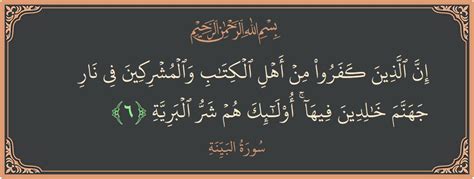 بِسْمِ اللَّهِ الرَّحْمَٰنِ الرَّحِيمِ
إِنَّ الَّذِينَ كَفَرُوا۟ مِنْ أَهْلِ الْكِتَٰبِ وَالْمُشْرِكِينَ فِى نَارِ
جَهَنَّمَ خَٰلِدِينَ فِيهَآ ۚ أُو۟لَٰٓئِكَ هُمْ شَرُّ الْبَرِيَّةِ ﴿٦﴾
سورة البينة